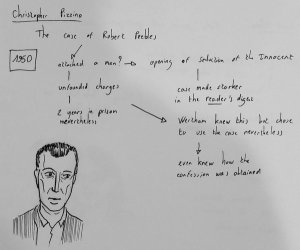 Christopher Pizzino
The case of Robert Peebles
1950
attacked a man? → opening of Seduction of the Innocent
unfounded charges
case made starker
in the reader's digest
2 years in prison
nevertheless
Wertham knew this but chose
to use the case nevertheless
even knew how the
confession was obtained